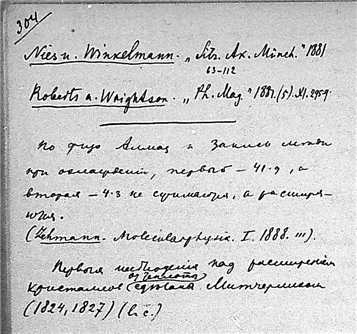 304
Nies u. Winkelmann. „Sitz. Ak. Münch." 1881
63-112
Roberts a. Wrightson. „Ph. Mag." 1881 (5). XI. 295.
По Физо Алмаз и Закись меди
при охлаждении, первый – 41·9, а
вторая – 4·3 не сжимается, а расширя-
ются.
(Lehmann. Molecularphysik. I. 1888.
Первыя наблюдения над расширением
от теплоты
кристаллов сделаны Митчерлихом
(1824, 1827) (l. c.)